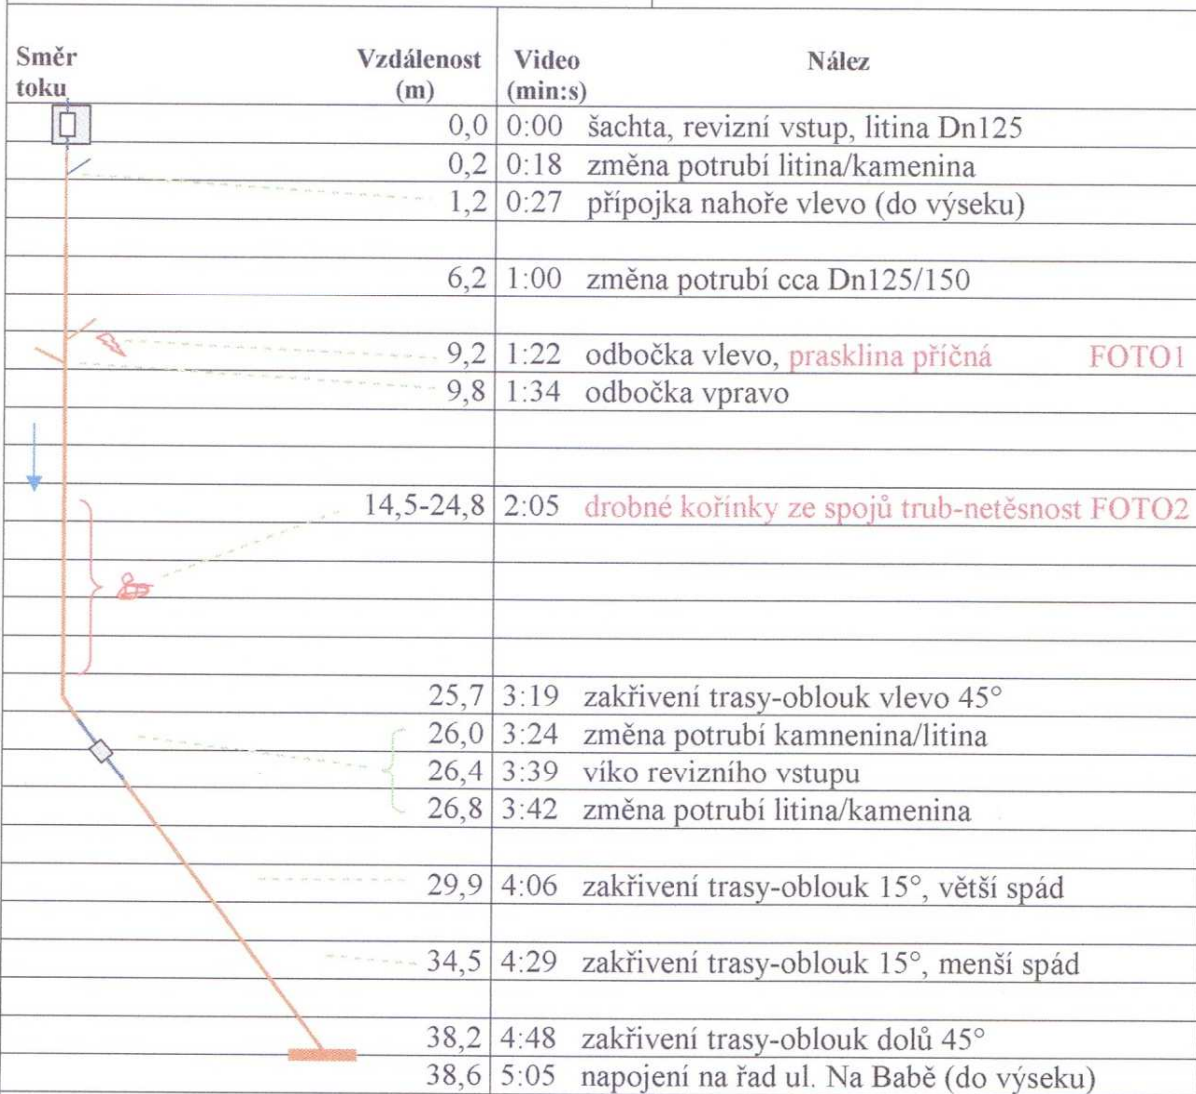 Směr toku Vzdálenost (m) Video (min:s) Nález
0,0 0:00 šachta, revizní vstup, litina Dn125
0,2 0:18 změna potrubí litina/kamenina
1,2 0:27 přípojka nahoře vlevo (do výseku)
6,2 1:00 změna potrubí cca Dn125/150
9,2 1:22 odbočka vlevo, prasklina příčná FOTO1
9,8 1:34 odbočka vpravo
14,5-24,8 2:05 drobné kořínky ze spojů trub-netěsnost FOTO2
25,7 3:19 zakřivení trasy-oblouk vlevo 45°
26,0 3:24 změna potrubí kamnenina/litina
26,4 3:39 víko revizního vstupu
26,8 3:42 změna potrubí litina/kamenina
29,9 4:06 zakřivení trasy-oblouk 15°, větší spád
34,5 4:29 zakřivení trasy-oblouk 15°, menší spád
38,2 4:48 zakřivení trasy-oblouk dolů 45°
38,6 5:05 napojení na řad ul. Na Babě (do výseku)